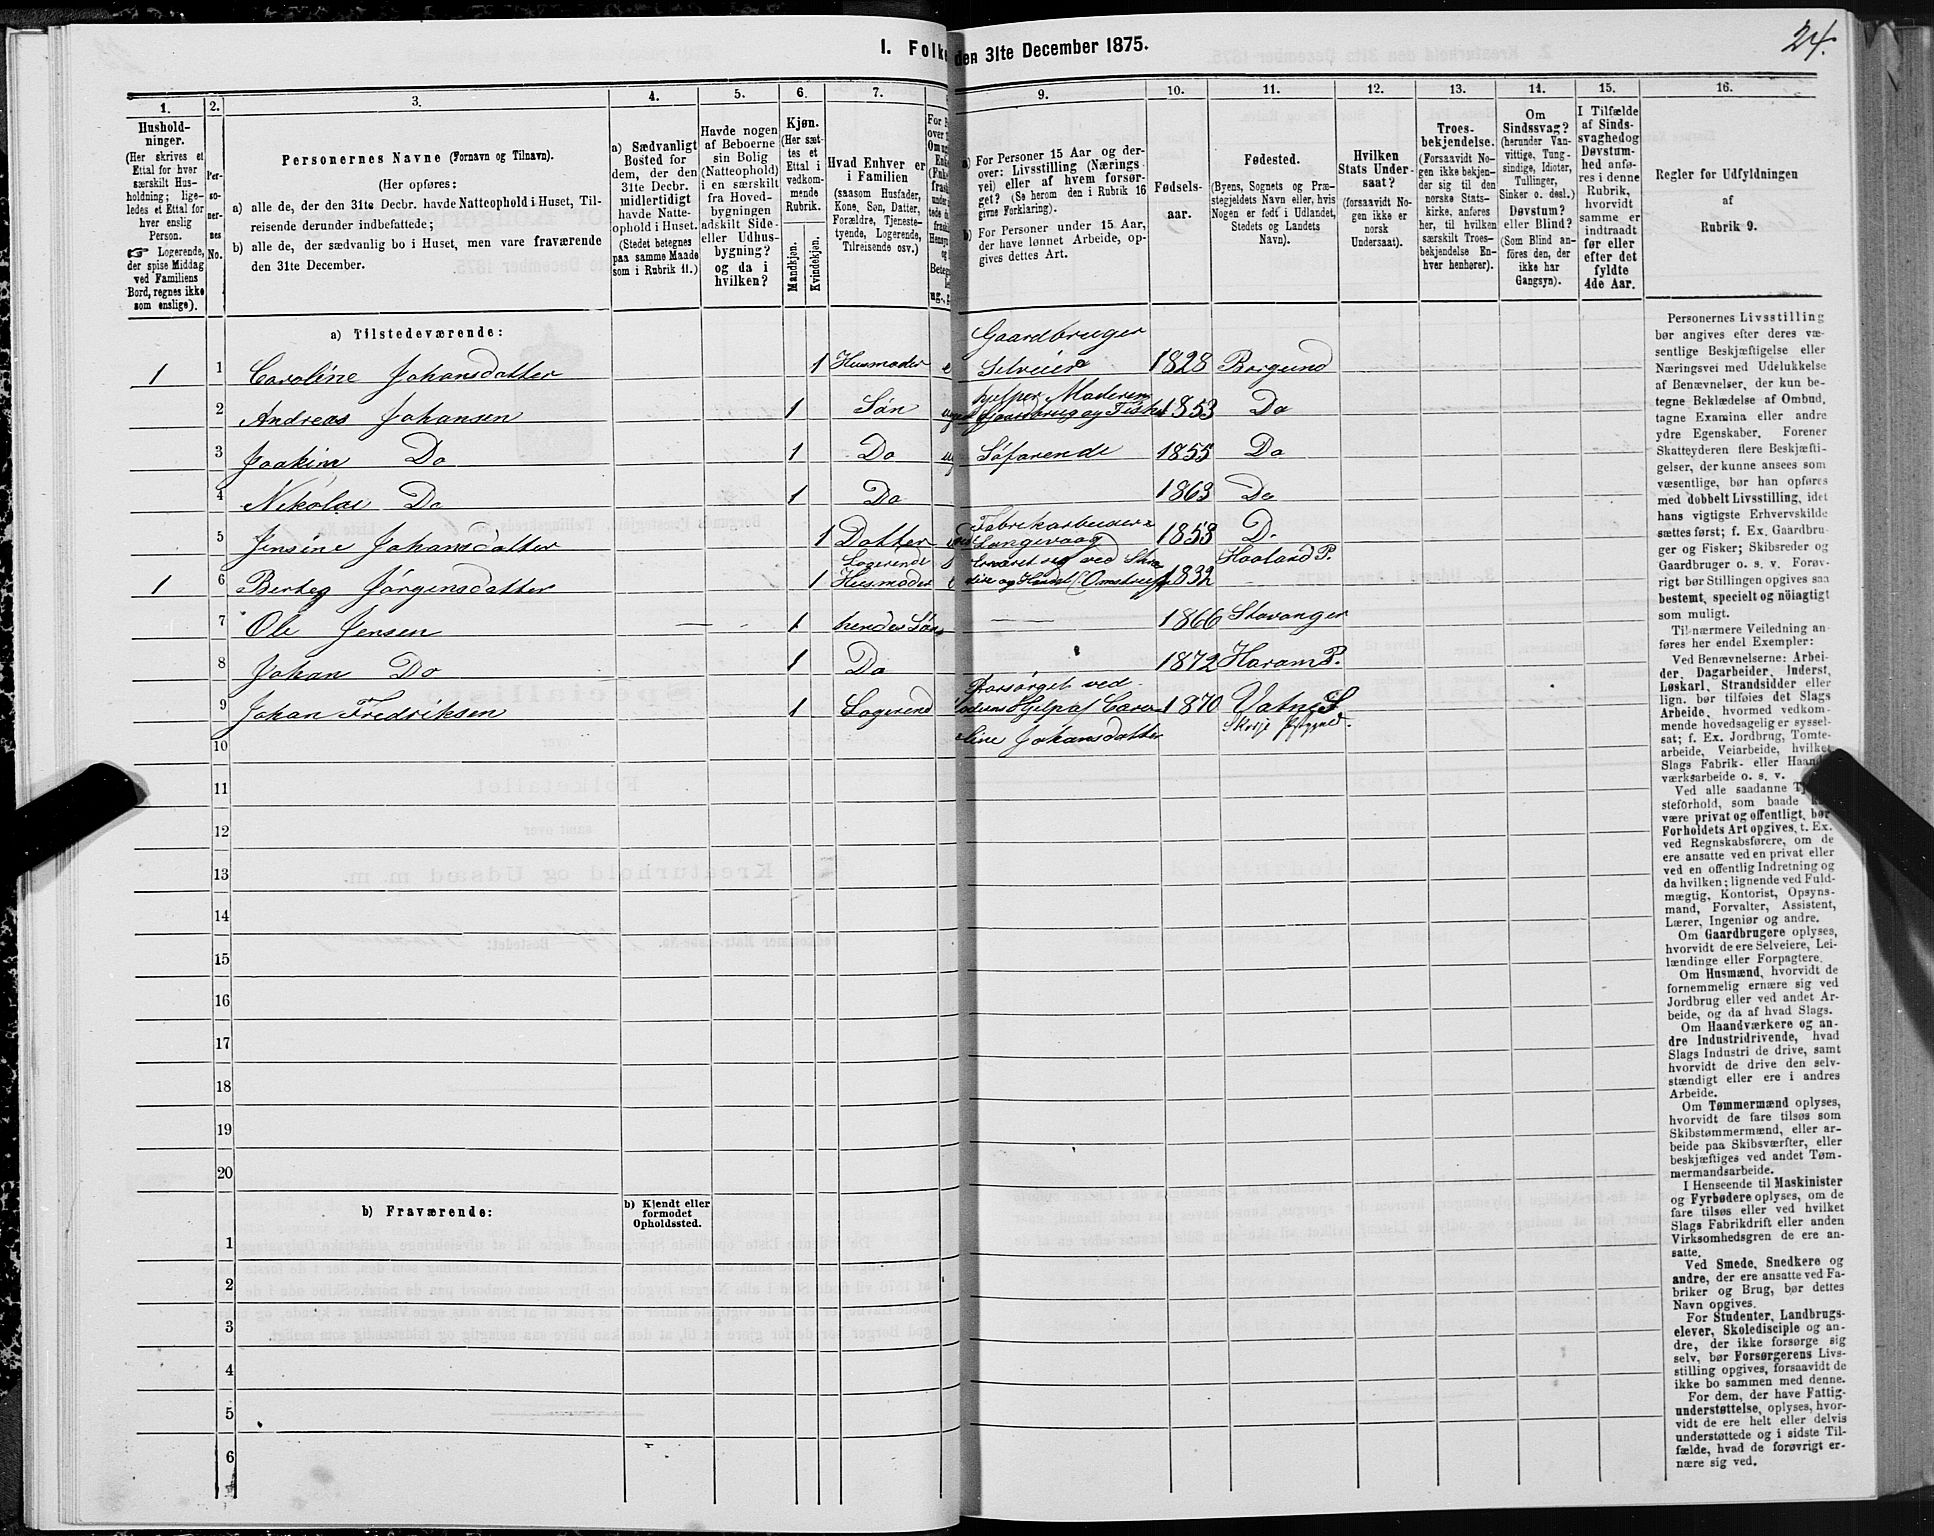 24.
I. Folke
den 31te December 1875.
1.
2.
3.
4.
5.
6.
7.
9.
10.
11.
12.
13.
14.
15.
16.
Hushold-
ninger.
(Her skrives et
Ettal for hver
særskilt Hus-
holdning; lige-
ledes et Ettal for
hver enslig
Person.
☞ Logerende,
der spise Middag
ved Familiens
Bord, regnes ikke
som enslige).
Per-
so-
ner-
nes
No.
Personernes Navne (Fornavn og Tilnavn).
(Her opføres:
a) alle de, der den 31te Decbr. havde Natteophold i Huset, Til-
reisende derunder indbefattede;
b) alle de, der sædvanlig bo i Huset, men vare fraværende
den 31te December.
a) Sædvanligt
Bosted for
dem, der den
31te Decbr.
midlertidigt
havde Natte-
ophold i Huset.
(Stedet betegnes
paa samme Maade
som i Rubrik 11.)
Havde nogen
af Beboerne
sin Bolig
(Natteophold)
i en særskilt
fra Hoved-
bygningen
adskilt Side-
eller Udhus-
bygning?
og da i
hvilken?
Kjøn.
(Her sæt-
tes et
Ettal i
vedkom-
mende
Rubrik.
Mandkjøn.
Kvindekjøn.
Hvad Enhver er
i Familien
(saasom Husfader,
Kone, Søn, Datter,
Forældre, Tjeneste-
tyende, Logerende,
Tilreisende osv.)
a) For Personer 15 Aar og der-
over: Livsstilling (Nærings-
vei) eller af hvem forsør-
get? (Se herom den i Rubrik 16
givne Forklaring).
b) For Personer under 15 Aar,
der have lønnet Arbeide, op-
gives dettes Art.
Fødsels-
aar.
Fødested.
(Byens, Sognets og Præ-
stegjeldets Navn eller, hvis
Nogen er født i Udlandet,
Stedets og Landets
Navn).
Hvilken
Stats Under-
saat?
(forsaavidt No-
gen ikke er
norsk
Undersaat).
Troes-
bekjendelse.
(Forsaavidt No-
gen ikke bekjen-
der sig til den
norske Stats-
kirke, anføres
her, til hvilken
særskilt Troes-
bekjendelse En-
hver henhører).
Om
Sindssvag?
(herunder Van-
vittige, Tung-
sindige, Idioter,
Tullinger,
Sinker o. desl.)
Døvstum?
eller Blind?
(Som Blind an-
føres den, der
ikke har
Gangsyn).
I Tilfælde
af Sinds-
svaghed og
Døvstum-
hed anfø-
res i denne
Rubrik,
hvorvidt
samme er
indtraadt
før eller
efter det
fyldte
4de Aar.
Regler for Udfyldningen
af
Rubrik 9.
a) Tilstedeværende:
Gaardbruger
1 1 Caroline Johansdatter 1 Husmoder e Selveier 1828 Borgund
hjelper Moderen
2 Andreas Johansen 1 Søn Gaardbrug og Fiske 1853 Do
3 Joakim Do 1 Do Søfarende 1855 Do
4 Nikolai Do 1 Do 1863 Do
Fabrikarbeider
5 Jensine Johansdatter 1 Datter Langevaag 1853 D.
Logerende ernæret sig ved Haaland P.
1 6 Berte Jørgensdatter 1 Husmoder 1832
7 Ole Jensen 1 hendes Søn 1866 Stavanger
8 Johan Do 1 Do 1872 Haram P.
Forsørget ved
9 Johan Fredriksen 1 Logerend Hjelp af Caro- 1870 Vatne S
10 line Johansdatter
11
12
13
14
15
16
17
18
19
20
b) Fraværende:
b) Kjendt eller
formodet
Opholdssted.
1
2
3
4
5
6
Personernes Livsstilling
bør angives efter deres væ-
sentlige Beskjæftigelse eller
Næringsvei med Udelukkelse
af Benævnelser, der kun be-
tegne Beklædelse af Ombud,
tagne Examina eller andre
ydre Egenskaber. Forener
Skatteyderen flere Beskjæfti-
gelser, der kunne ansees som
væsentlige, bør han opføres
med dobbelt Livsstilling, idet
hans vigtigste Erhvervskilde
sættes først; f. Ex. Gaardbru-
ger og Fisker; Skibsreder og
Gaardbruger o. s. v. Forøv-
rigt bør Stillingen opgives saa
bestemt, specielt og nöiagtigt
som muligt.
Til nærmere Veiledning an-
føres her endel Exempler:
Ved Benævnelserne: Arbei-
der, Dagarbeider, Inderst,
Løskarl, Strandsidder eller
lign. bør tilføies det Slags
Arbeide, hvormed vedkom-
mende hovedsagelig er syssel-
sat; f. Ex. Jordbrug, Tomte-
arbeide, Veiarbeide, hvilket
Slags Fabrik- eller Haand-
værksarbeide o. s. v.
Ved alle saadanne
steforhold, som baade
være privat og offentligt, bør
Forholdets Art opgives, t. Ex.
ved Regnskabsførere, om de
ere ansatte ved en privat eller
ved en offentlig Indretning og
da hvilken; lignende ved Fuld-
mægtig, Kontorist, Opsyns-
mand, Forvalter, Assistent,
Lærer, Ingeniør og andre.
Om Gaardbrugere oplyses,
hvorvidt de ere Selveiere, Lei-
lændinge eller Forpagtere.
Om Husmænd, hvorvidt de
fornemmelig ernære sig ved
Jordbrug eller ved andet Ar-
beide, og da af hvad Slags.
Om Haandværkere og an-
dre Industridrivende, hvad
Slags Industri de drive, samt
hvorvidt de drive den selv-
stændigt eller ere i andres
Arbeide.
Om Tømmermænd oplyses,
hvorvidt de fare tilsøs som
Skibstømmermænd, eller ar-
beide paa Skibsværfter, eller
beskjæftiges ved andet Tøm-
mermandsarbeide.
I Henseende til Maskinister
og Fyrbødere oplyses, om de
fare tilsøs eller ved hvilket
Slags Fabrikdrift eller anden
Virksomhedsgren de ere an-
satte.
Ved Smede, Snedkere og
andre, der ere ansatte ved Fa-
briker og Brug, bør dettes
Navn opgives.
For Studenter, Landbrugs-
elever, Skoledisciple og an-
dre, der ikke forsørge sig
selv, bør Forsørgerens Livs-
stilling opgives, forsaavidt de
ikke bo sammen med denne.
For dem, der have Fattig-
understøttelse, oplyses, hvor-
vidt de ere helt eller delvis
understøttede og i sidste Til-
fælde, hvad de forøvrigt er-
nære sig ved.